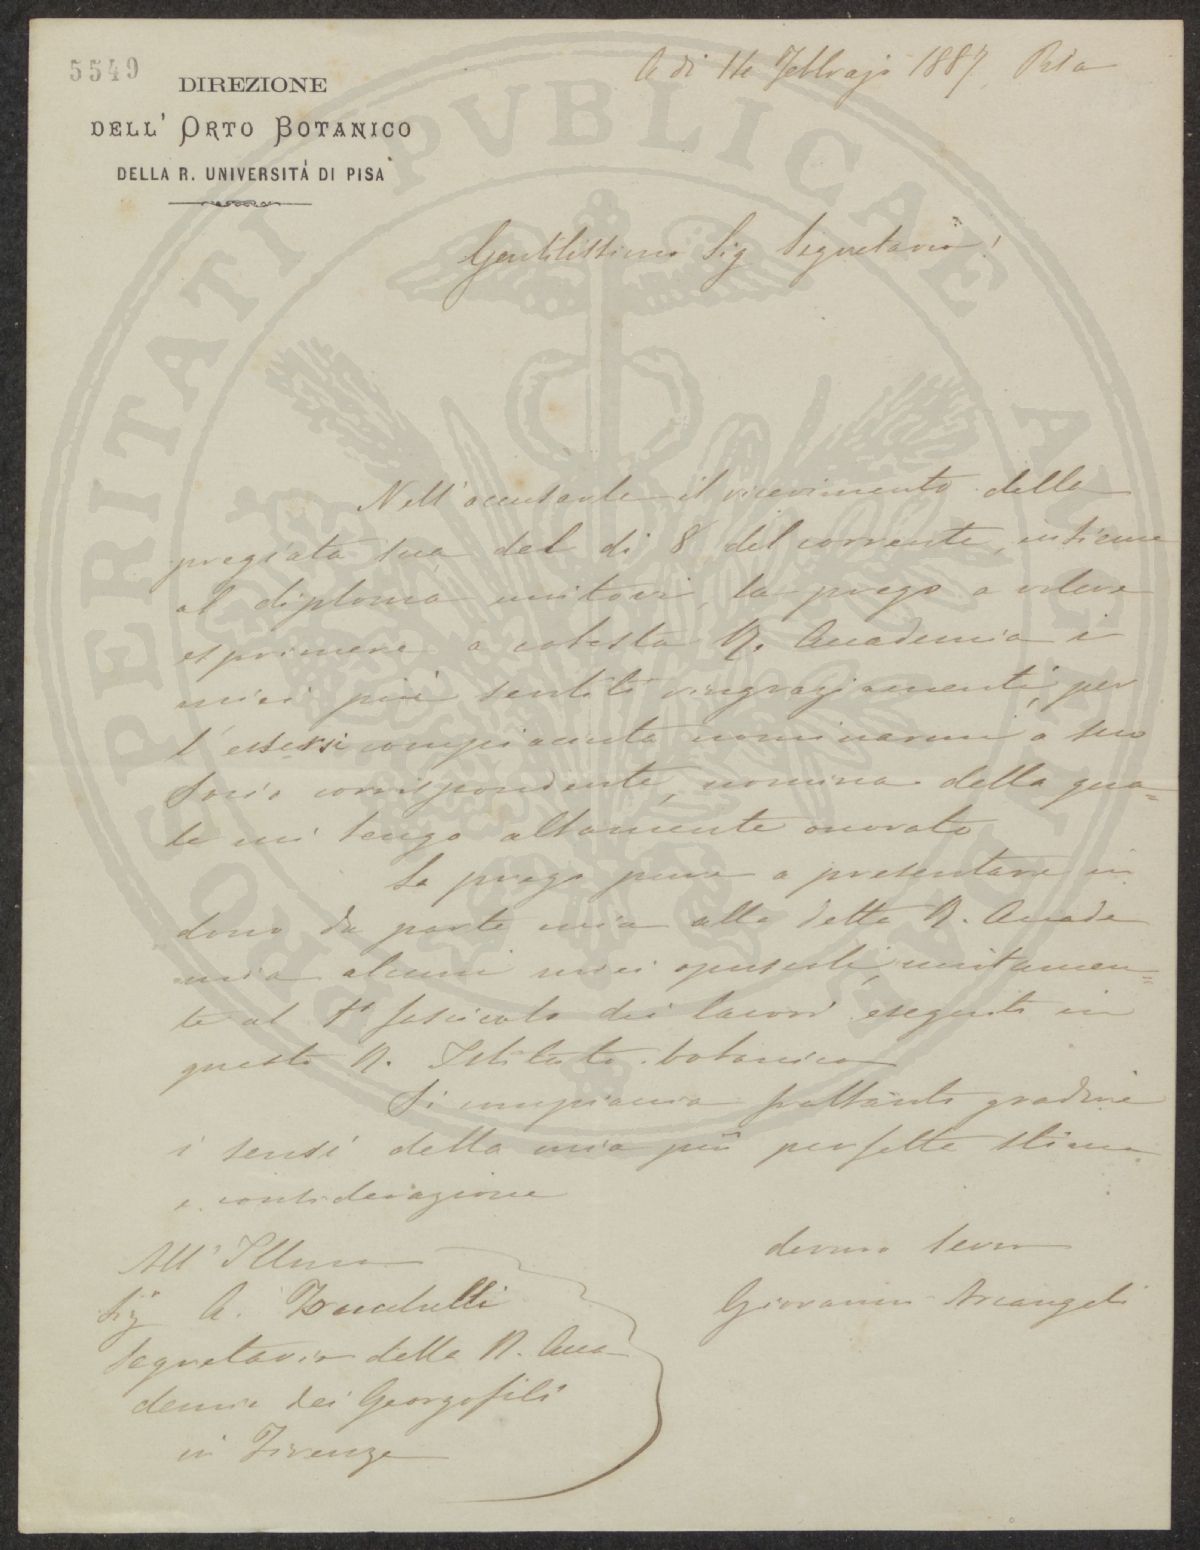 5549
DIREZIONE
DELL' ORTO BOTANICO
DELLA R. UNIVERSITÀ DI PISA
A di 14 Febbrajo 1887, Pisa
Gentilissimo Sig Segretario!
Nell'accusarle il ricevimento della
pregiata sua del di 8 del corrente, insieme
al diploma unitovi, la prego a volere
esprimere a cotesta R. Accademia i
miei più sentiti ringraziamenti, per
l'essersi compiaciuta nominarmi a suo
Socio corrispondente, nomina della qua=
le mi tengo altamente onorato
La prego pure a presentare in
dono da parte mia alla detta R. Accade
mia alcuni miei opuscoli, unitamen=
te al 1° fascicolo dei lavori eseguiti in
questo R. Istituto botanico
Si compiaccia frattanto gradire
i sensi della mia più perfetta stima
e considerazione
devmo servo
Giovanni Arcangeli
All' Illmo
Sig A. Zucchelli
Segretario della R. Acca
demia dei Georgofili
in Firenze
PROSPERITATI PVBLICAE AVGENDAE